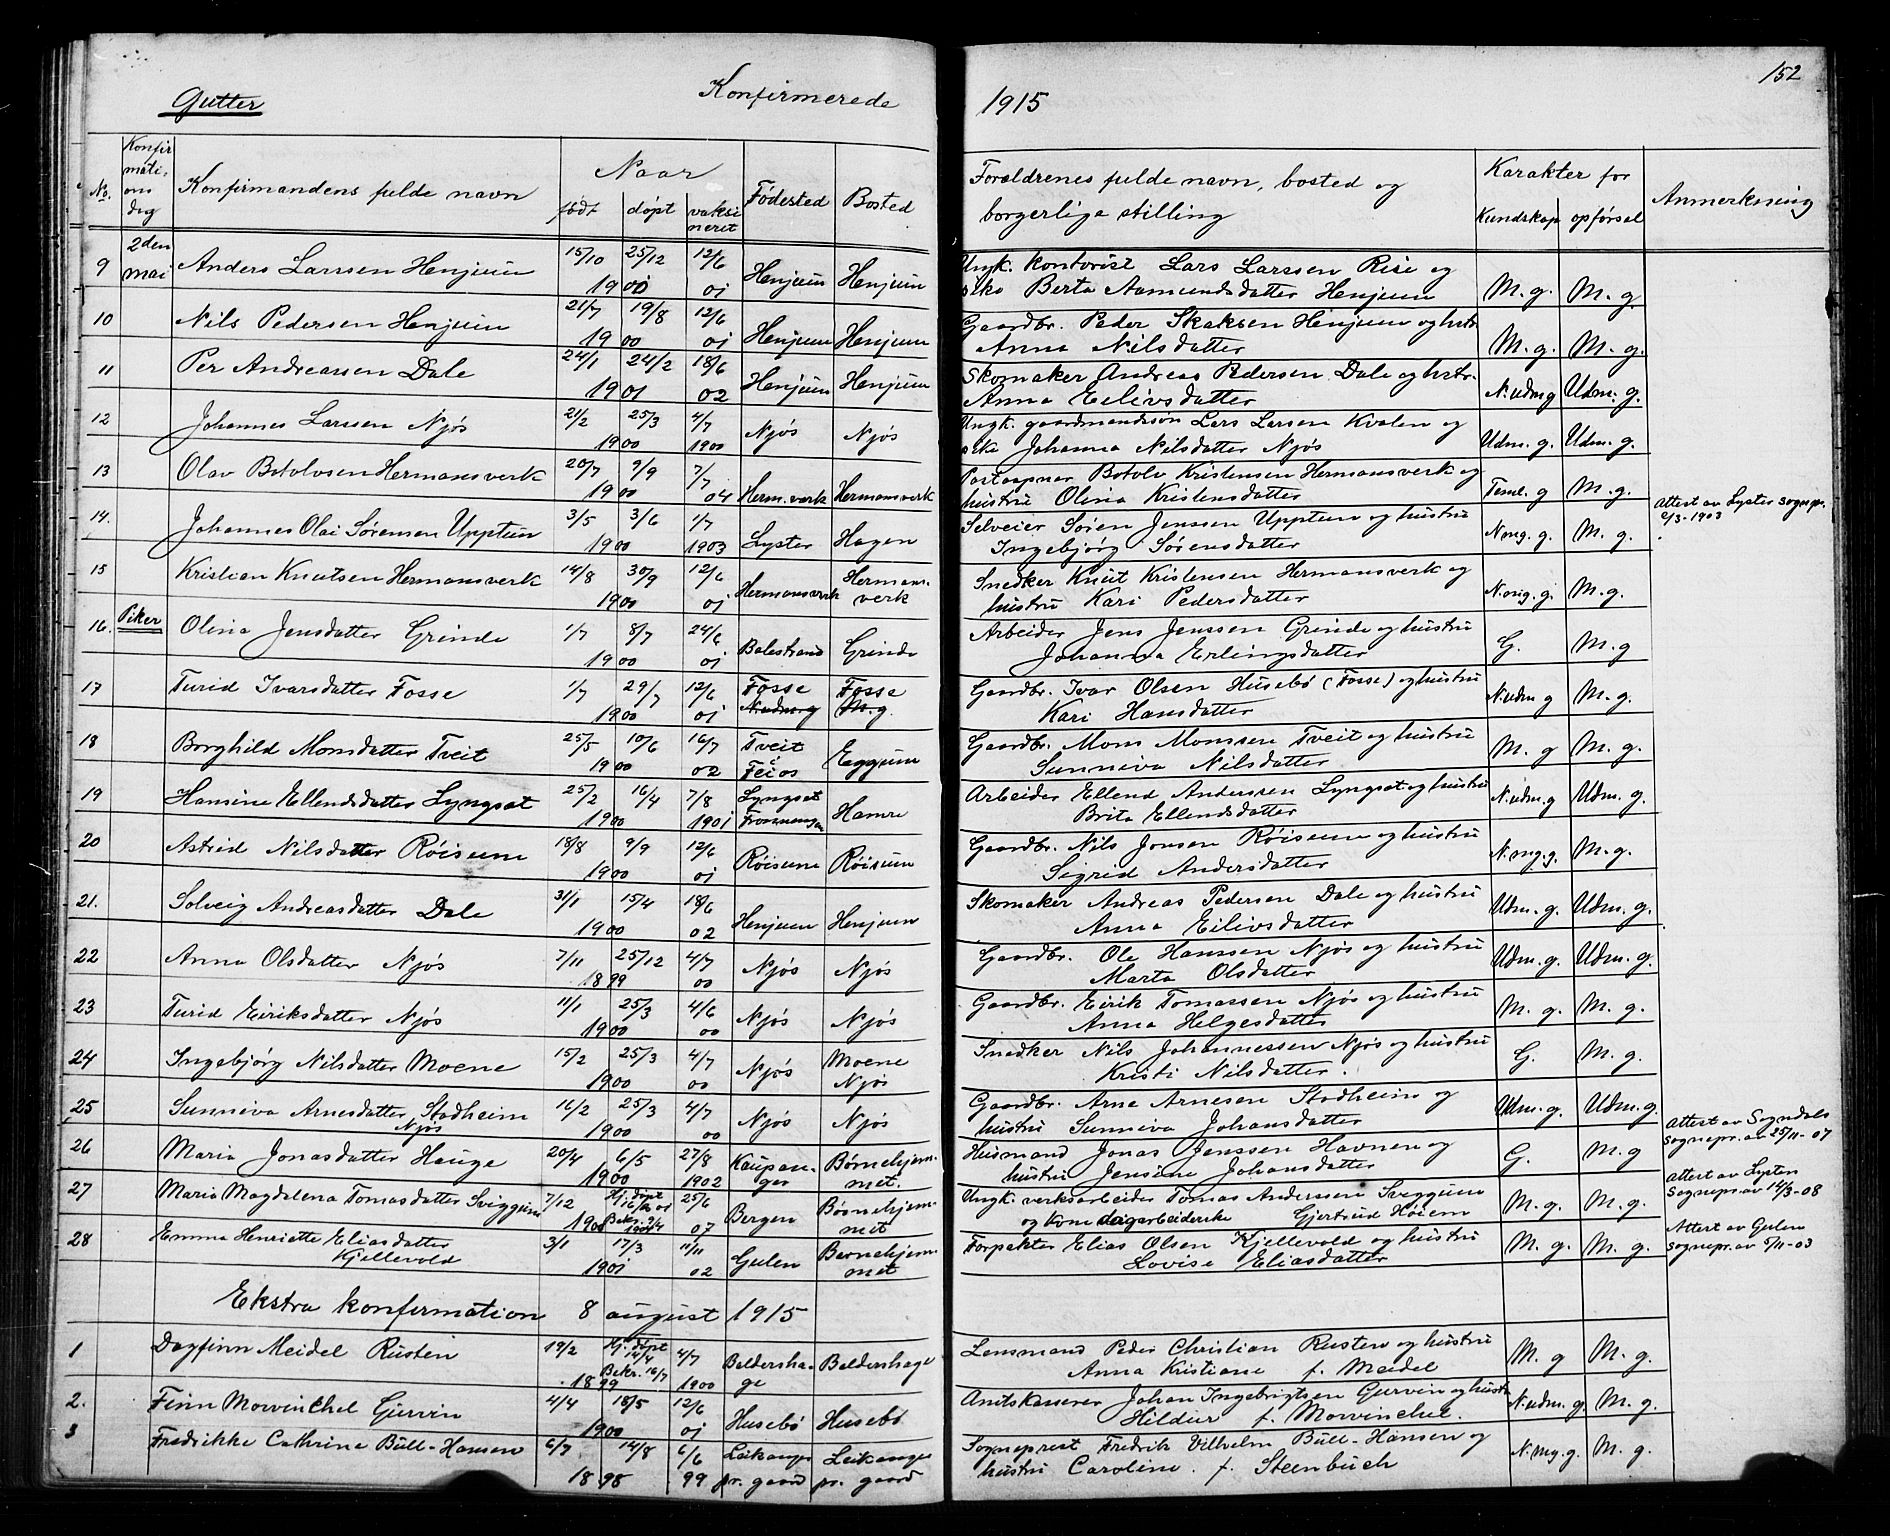 152
Gutter Konfirmerede 1915
No. Konfirmations dag Konfirmandens fulde navn Naar født døpt vaksineret Fødested Bosted Forældrenes fulde navn, bosted og borgerlige stilling Karakter for Kundskap opførsel Anmerkning
9 2den mai Anders Larssen Henjum 15/10 25/12 12/6 Henjum Henjum Ungk. kontorist Lars Larssen Risi og M. g. M. g
1900 01 pike Berta Aamundsdatter Henjum
10 Nils Pedersen Henjum 21/7 19/8 12/6 Henjum Henjum Gaardbr. Peder Skaksen Henjum og hstr. M. g. M. g.
1900 01 Anna Nilsdatter
11 Per Andreassen Dale 24/1 24/2 18/6 Henjum Henjum Skomaker Andreas Pedersen Dale og hstr. N. udm g Udm. g.
1901 02 Anna Eilivsdatter
12 Johannes Larssen Njøs 21/2 25/3 4/7 Njøs Njøs Ungk. gaardmandssøn Lars Larsen Kvalen og Udm. g. Udm. g.
1900 1900 pike Johanna Nilsdatter Njøs
13 Olav Botolvsen Hermansverk 20/7 9/9 7/7 Herm.verk Hermansverk Postaapner Botolv Kristensen Hermansverk og Teml. g M. g.
1900 04 hustru Olina Kristensdatter
14. Johannes Olai Sørensen Upptun 3/5 3/6 1/7 Lyster Hagen Selveier Søren Jenssen Upptun og hustru N mg. g. M. g. Attest av Lyster sognepr.
1900 1903 Ingebjørg Sørensdatter 2/3-1903
15 Kristian Knutsen Hermansverk 14/8 30/9 12/6 Hermansverk Hermansverk Snedker Knut Kristensen Hermansverk og N. mg. g. M. g.
1900 01 hustru Kari Pedersdatter
16. Piker Olina Jensdatter Grinde 1/7 8/7 24/6 Balestrand Grinde Arbeider Jens Jenssen Grinde og hustru G. M. g
1900 01 Johanna Erlingsdatter
17 Turid Ivarsdatter Fosse 1/7 29/7 12/6 Fosse Fosse Gaardbr. Ivar Olsen Husebø (Fosse) og hustru N. udm g M. g.
1900 01 N. udm. g M. g. Kari Hansdatter
18 Borghild Monsdatter Tveit 25/5 10/6 16/7 Tveit i Feios Eggum Gaardbr. Mons Monssen Tveit og hustru M. g M. g.
1900 02 Sunniva Nilsdatter
19 Hansine Ellendsdatter Lyngsæt 25/2 16/4 7/8 Lyngset Hamre Arbeider Ellend Anderssen Lyngsæt og hustru N. udm. g Udm. g.
1900 1901 Frønningen Brita Ellendsdatter
20 Astrid Nilsdatter Røisum 18/8 9/9 12/6 Røisum Røisum Gaardbr. Nils Jonsen Røisum og hustru N. mg. g. M. g.
1900 01 Sigrid Andersdatter
21. Solveig Andreasdatter Dale 31/1 15/4 18/6 Henjum Henjum Skomaker Andreas Pedersen Dale og hustru Udm. g. Udm. g.
1900 02 Anna Eilivsdatter
22 Anna Olsdatter Njøs 7/11 25/12 4/7 Njøs Njøs Gaardbr. Ole Hanssen Njøs og hustru Udm. g. Udm. g.
1899 00 Marta Olsdatter
23 Turid Eiriksdatter Njøs 11/1 25/3 4/6 Njøs Njøs Gaardbr. Eirik Tomassen Njøs og hustru M. g. M. g.
1900 00 Anna Helgesdatter
24 Ingebjørg Nilsdatter Moene 15/2 25/3 4/7 Njøs Moene Njøs Snedker Nils Johannessen Njøs og hustru G. M. g.
1900 00 Kristi Nilsdatter.
25 Sunniva Arnesdatter Stadheim 16/2 25/3 4/7 Njøs Njøs Gaardbr. Arne Arnesen Stadheim og Udm. g. Udm. g.
Njøs 1900 00 hustru Sunniva Johansdatter
26 Maria Jonasdatter Hauge 20/4 6/5 27/8 Kaupanger Børnehjemmet. Husmand Jonas Jenssen Havnen og G. M. g Attest av Sogndals
1900 1902 hustru Jensine Johansdatter Sognepr. av 25/11-07
27 Maria Magdalena Tomasdatter Sviggum 7/12 Hj. døpt 16/12 01 25/6 Bergen Børnehjemmet Ungk. verksarbeider Tomas Anderssen Sviggum M. g. M. g. Attest av Lysten
1900 Bekr. 07 og kone dagarbeiderske Gjertrud Høiem Sognepr. av 14/3-08
28 Emma Henriette Eliasdatter 3/1 17/3 11/11 Gulen Børnehjemmet Forpakter Elias Olsen Kjellevold og hustru M. g. M. g. Attest av Gulen
Kjellevold 1901 02 Lovise Eliasdatter Sognepr. av 5/11-03
Ekstra konfirmation 8 august 1915
1 Dagfinn Meidel Rusten 19/2 Hj. døpt 14/4 4/7 Baldershage Baldershage Lensmand Peder Christian Rusten og hustru M. g M. g.
1899 Bekr. 16/7 1900 Anna Kristiane f. Meidel
2. Finn Mowinchel Gjervin 4/4 18/5 12/6 Husebø Husebø Amtskasserer Johan Ingebrigtsen Gjervin og hustru N. udm. g M. g.
1900 01 Hildur f. Mowinchel.
3 Fredrikke Cathrine Büll-Hansen 6/7 14/8 6/6 Leikanger Leikanger Sogneprest Fredrik Vilhelm Büll-Hansen og N. mg. g. M. g.
1898 99 pr. gaard pr. gaard hustru Caroline. f. Steenbuch